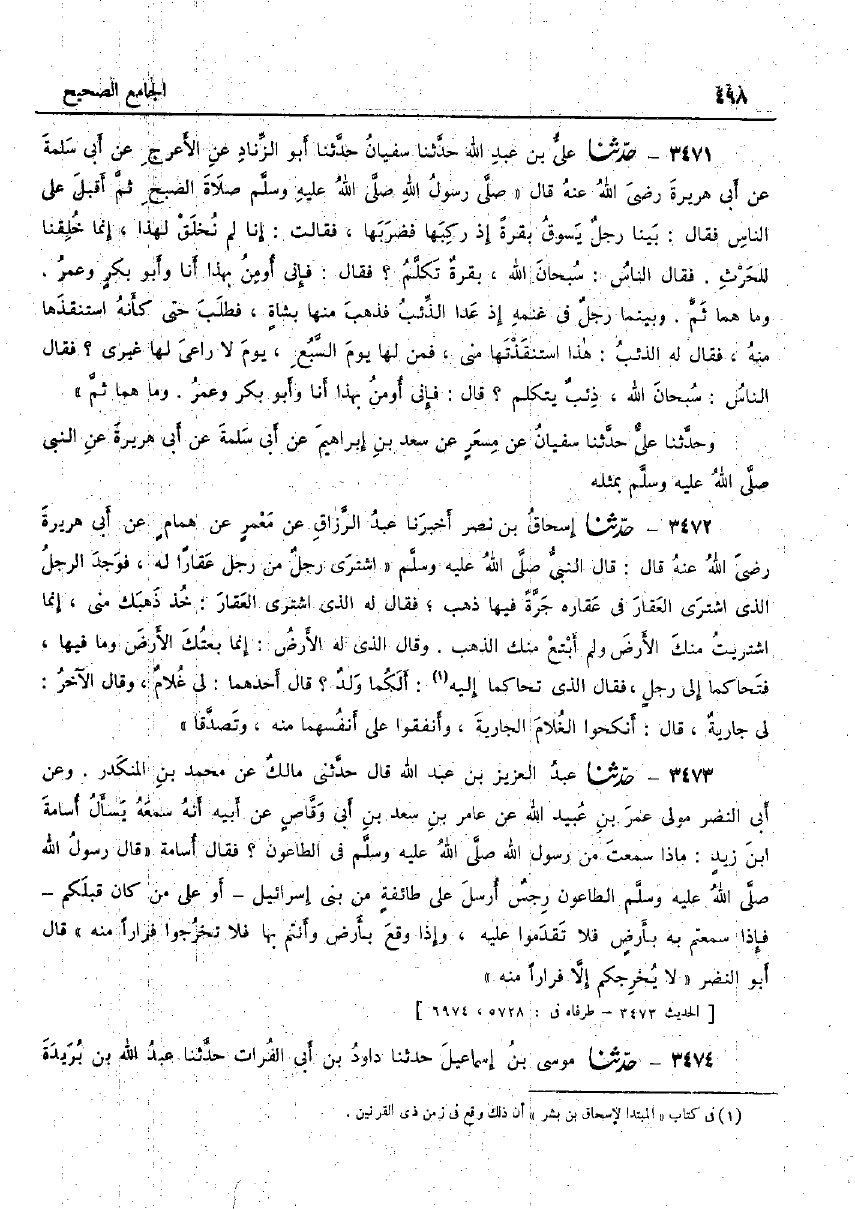 ٤٩٨ الجامع الصحيح
٣٤٧١ – حدّثنا علىُّ بن عبدِ الله حدَّثنا سفيانُ حدَّثنا أبو الزِّنادِ عنِ الأَعرج ِ عن أَبى سَلمةَ
عن أَبى هريرةَ رضىَ اللهُ عنهُ قال « صلَّى رسولُ اللهِ صلَّى اللهُ عليهِ وسلَّم صلاةَ الصبح ِ ثمَّ أَقبلَ على
الناسِ فقال : بَينا رجلٌ يَسوقُ بقرةً إذ ركِبَها فضرَبَها ، فقالت : إنا لم نُخلَقْ لهذا ، إنَّما خُلِقنا
للحَرْثِ . فقال الناسُ : سُبحانَ الله ، بقرةٌ تكلَّمُ ؟ فقال : فإنى أُومِنُ بهذا أنا وأبو بكرٍ وعمرُ .
وما هما ثَمَّ . وبينما رجلٌ فى غنمهِ إذ عَدا الذِّئبُ فذهبَ منها بشاةٍ ، فطلَبَ حتى كأنهُ استنقذَها
منهُ ، فقال له الذئبُ : هٰذا استنقَذْتَها منى ، فمن لها يومَ السَّبُع ِ ، يومَ لا راعىَ لها غيرى ؟ فقال
الناسُ : سُبحانَ الله ، ذِئبٌ يتكلم ؟ قال : فإنى أُومنُ بهذا أنا وأبو بكر وعمرُ . وما هما ثمَّ »
وحدَّثنا علىٌّ حدَّثنا سفيانُ عن مِسعَرٍ عن سعدِ بنِ إبراهيمَ عن أَبى سَلمةَ عن أَبى هريرةَ عنِ النبى
صلَّى اللهُ عليه وسلَّم بمثله
٣٤٧٢ – حدّثنا إسحاقُ بن نصر أخبرَنا عبدُ الرَّزاقِ عن مَعْمرٍ عن همام ٍ عن أَبى هريرةَ
رضىَ اللهُ عنهُ قال : قال النبىُّ صلَّى اللهُ عليه وسلَّم « اشترَى رجلٌ من رجل عَقارًا له ، فوَجدَ الرجلُ
الذى اشترَى العَقارَ فى عَقاره جَرَّةً فيها ذهب ؛ فقال له الذى اشترى العقارَ : خُذ ذَهبَك منى ، إنما
اشتريتُ منكَ الأَرضَ ولم أَبتَعْ منك الذهب . وقال الذى له الأَرضُ : إنما بعتُكَ الأَرضَ وما فيها ،
فتَحاكما إلى رجلٍ ، فقال الذى تحاكما إليه(١) : أَلَكُما وَلدٌ ؟ قال أحدهما : لى غُلامٌ ، وقال الآخرُ :
لى جاريةٌ ، قال : أَنكحوا الغُلامَ الجاريةَ ، وأَنفقوا على أَنفُسهما منه ، وتَصدَّقا »
٣٤٧٣ – حدّثنا عبدُ العزيز بن عبد الله قال حدَّثنى مالكٌ عن محمد بنِ المنكَدر . وعن
أَبى النضر مولى عمرَ بنِ عُبيد الله عن عامر بنِ سعد بنِ أَبى وَقَّاصٍ عن أَبيه أَنهُ سمعَهُ يَسأَلُ أُسامةَ
ابنَ زيدٍ : ماذا سمعتَ من رسول الله صلَّى اللهُ عليه وسلَّم فى الطاعون ؟ فقال أُسامة «قال رسولُ الله
صلَّى اللهُ عليه وسلَّم الطاعون رِجسٌ أُرسلَ على طائفةٍ من بنى إسرائيل – أو على من كان قبلَكم –
فإذا سمعتم به بأَرضٍ فلا تَقدَموا عليه ، وإذا وقعَ بأَرض وأَنتم بها فلا تخرُجوا فراراً منه » قال
أَبو النضر « لا يُخرِجكم إلَّا فراراً منه »
[ الحديث ٣٤٧٣ – طرفاه فى : ٥٧٢٨ ، ٦٩٧٤ ]
٣٤٧٤ – حدّثنا موسى بنُ إسماعيلَ حدثنا داودُ بن أَبى الفُرات حدَّثنا عبدُ الله بن بُرَيدَةَ
(١) فى كتاب « المبتدا لإسحاق بن بشر » أن ذلك وقع فى زمن ذى القرنين .